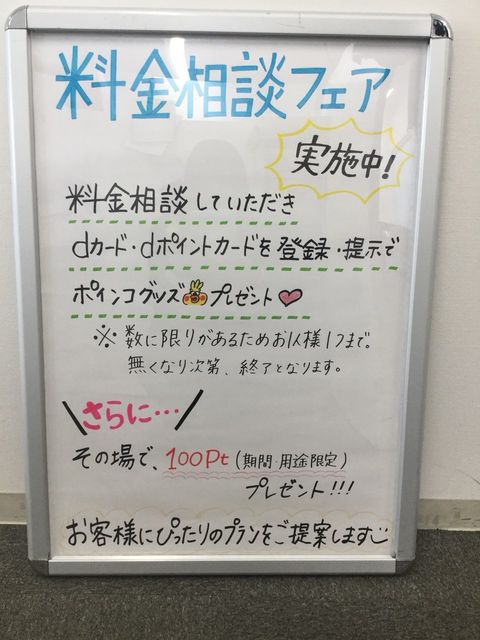 料金相談フェア
実施中!
料金相談していただき
dカード・dポイントカードを登録・提示で
ポインコグッズプレゼント♡
※数に限りがあるためお1人様1つまで。
無くなり次第、終了となります。
\さらに…/
その場で、100Pt(期間・用途限定)
プレゼント!!!
お客様にぴったりのプランをご提案します